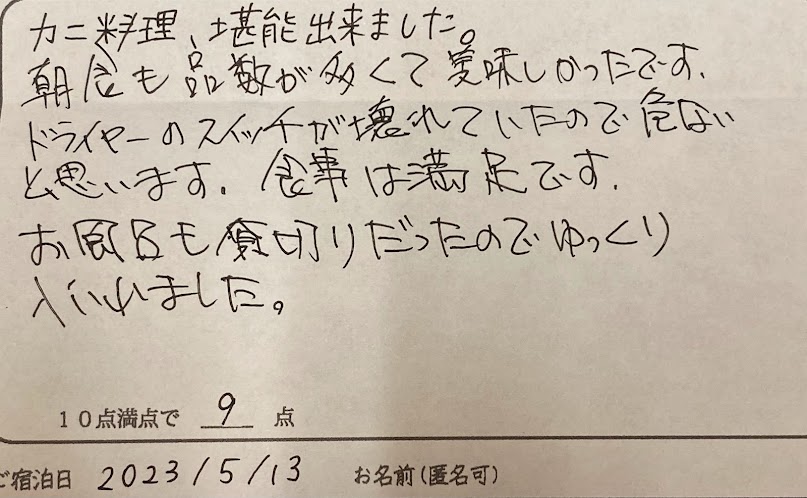 カニ料理、堪能出来ました。
朝食も品数が多くて美味しかったです.
ドライヤーのスイッチが壊れていたので危ない
と思います. 食事は満足です.
お風呂も貸切りだったのでゆっくり
入いれました。
10点満点で 9 点
ご宿泊日 2023/5/13 お名前(匿名可)